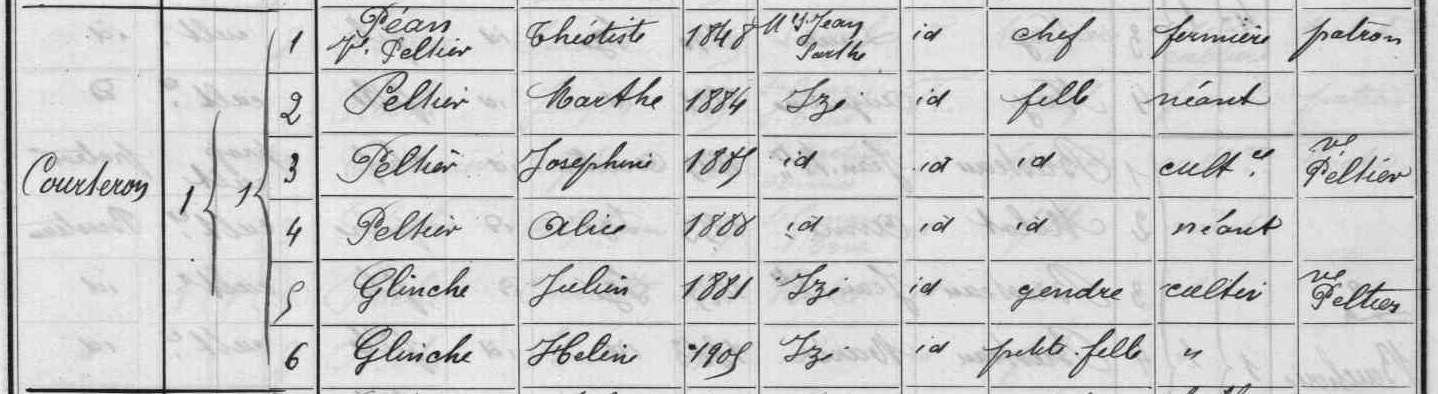 Courteron 1 1 1 Péan Ve Peltier Théotiste 1848 St Jean Sarthe id chef fermière patron
2 Peltier Marthe 1884 Izé id fille néant
3 Peltier Josephine 1885 id id id cult Ve Peltier
4 Peltier Alice 1888 id id id néant
5 Glinche Julien 1881 Izé id gendre cultiv Ve Peltier
6 Glinche Helène 1905 Izé id petite fille "